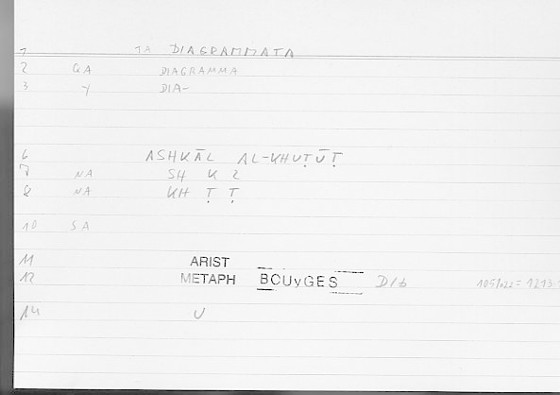 1 TA DIAGRAMMATA
2 GA DIAGRAMMA
3 Y DIA-
6 ASHKĀL AL-KHUṬŪṬ
7 NA SH K L
8 NA KH Ṭ Ṭ
10 SA
11 ARIST
12 METAPH BOUyGES D16
14 U